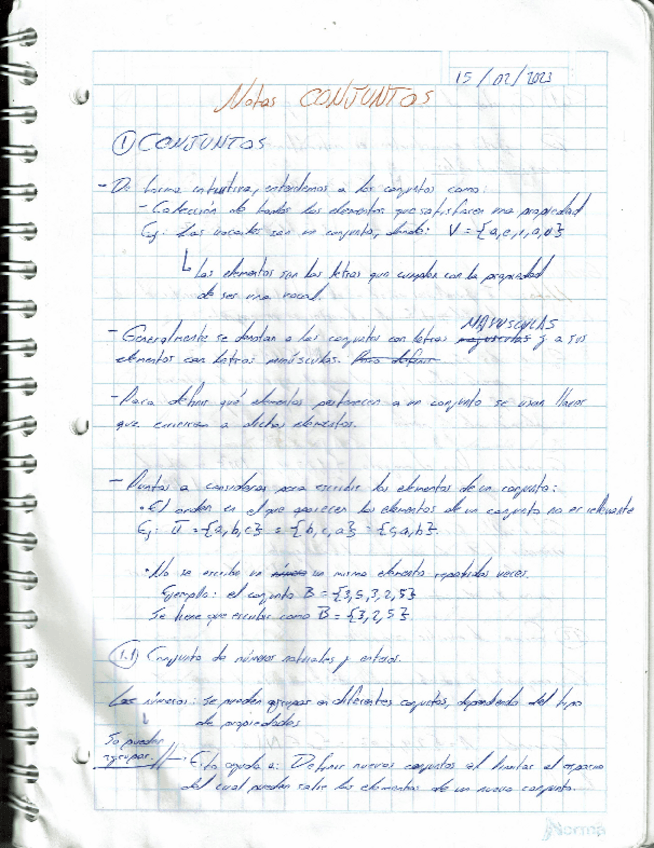 15/02/2023
Notas CONJUNTOS
① CONJUNTOS
- De forma intuitiva, entendemos a los conjuntos como:
- Colección de todos los elementos que satisfacen una propiedad
Ej: Las vocales son un conjunto, donde: V = {a,e,i,o,u}
Los elementos son las letras que cumplen con la propiedad
de ser una vocal.
MAYUSCULAS
- Generalmente se denotan a los conjuntos con letras mayusculas y a sus
elementos con letras minúsculas. Para definir
- Para definir qué elementos pertenecen a un conjunto se usan llaves
que encierran a dichos elementos.
- Puntos a considerar para escribir los elementos de un conjunto:
• El orden en el que aparecen los elementos de un conjunto no es relevante
Ej: U = {a,b,c} = {b,c,a} = {c,a,b}.
• No se escribe un un mismo elemento repetidas veces.
Ejemplo: el conjunto B = {3,5,3,2,5}
Se tiene que escribir como B = {3,2,5}
1.1 Conjunto de números naturales y enteros.
Los números: se pueden agrupar en diferentes conjuntos, dependiendo del tipo
de propiedades
Se pueden
agrupar.
Esto ayuda a: Definir nuevos conjuntos al limitar el espacio
del cual pueden salir los elementos de un nuevo conjunto.
Norma